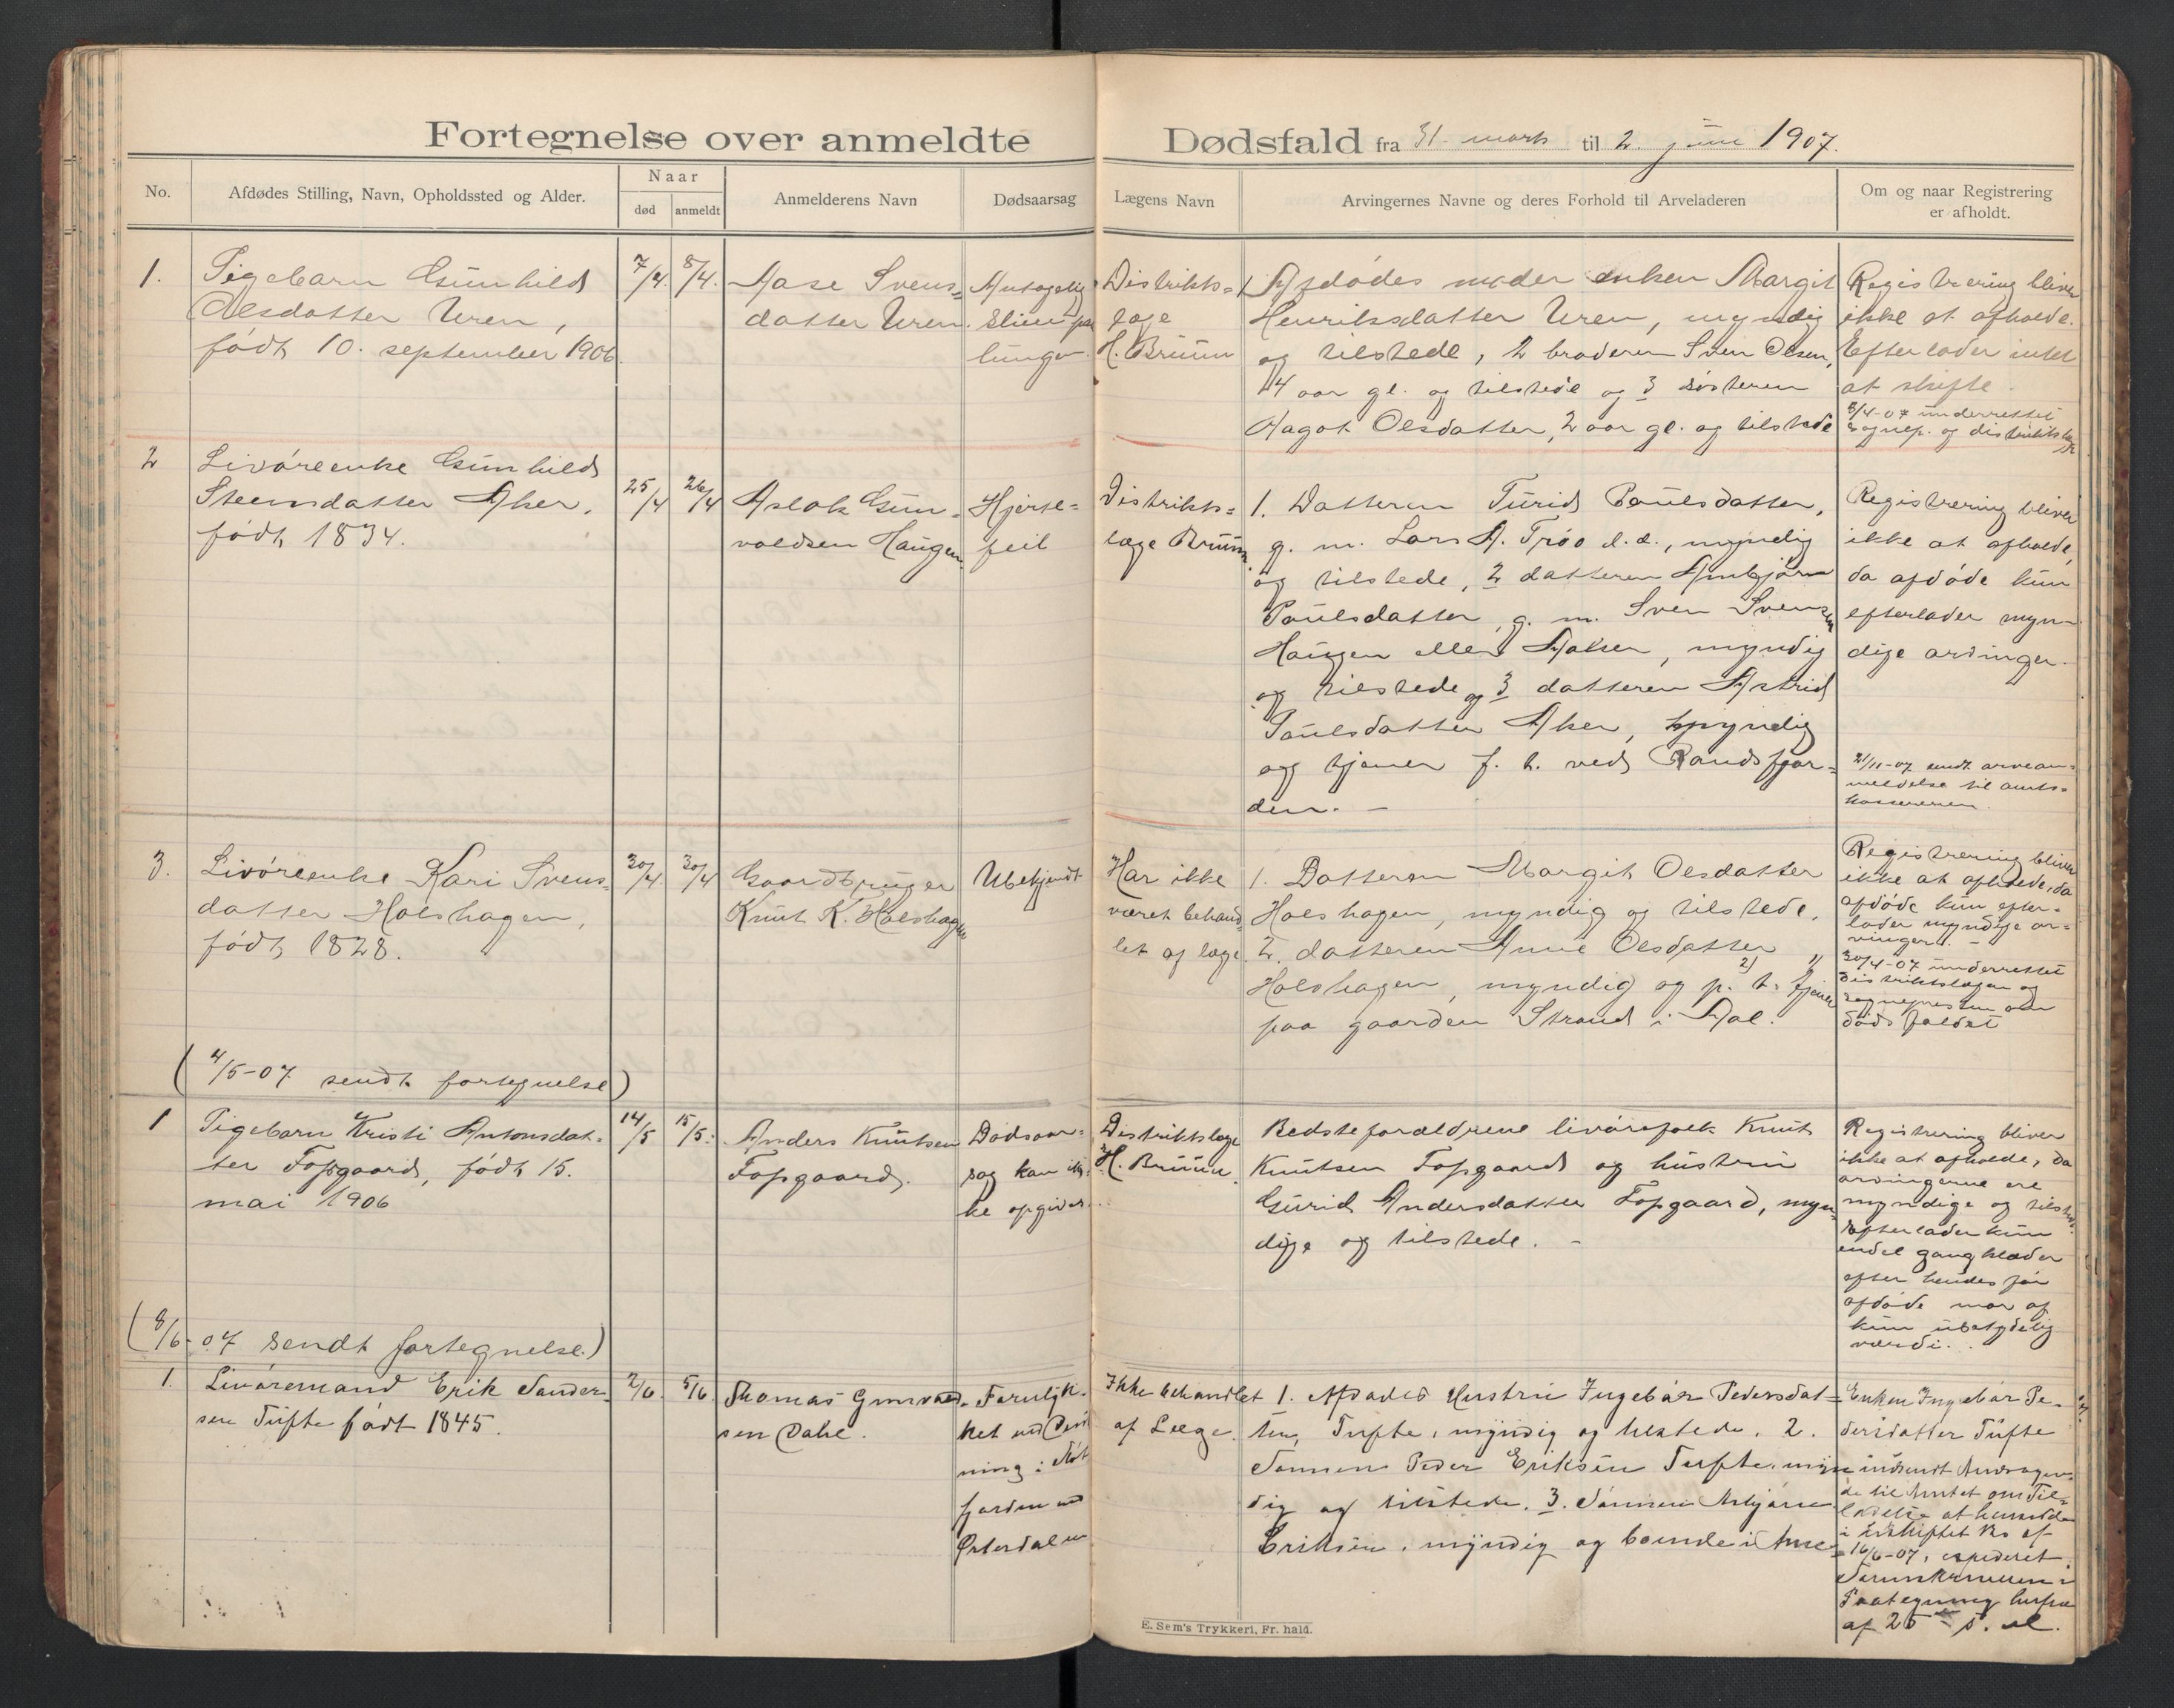 Fortegnelse over anmeldte Dødsfald fra 31. marts til 2. juni 1907.
No.
Afdødes Stilling, Navn, Opholdssted og Alder.
Naar
død
anmeldt
Anmelderens Navn
Dødsaarsag
Lægens Navn
Arvingernes Navne og deres Forhold til Arveladeren
Om og naar Registrering
er afholdt.
1.
Pigebarn Gunhild
Olsdatter Uren,
født 10. september 1906.
7/4.
8/4.
Aase Svens=
datter Uren.
Antagelig
Sliim paa
lunger
Distrikts=
læge
H. Bruun
1. Afdødes moder enken Margit
Henriksdatter Uren, myndig
og tilstede, 2 broderen Sven Olsen,
4 aar gl. og tilstede og 3 søsteren
Aagot Olsdatter, 2 aar gl. og tilstede
Registrering bliver
ikke at afholde.
Efterlader intet
at skifte.
8/4-07 underrettet
sognep. og distriktslæge
2
Livøreenke Gunhild
Steensdatter Aker,
født 1834.
25/4
26/4
Aslak Gun=
valdsen Haugen
Hjerte=
feil
Distrikts=
læge Bruun
1. Datteren Turid Paulsdatter,
g. m. Lars A. Trøo d. d., myndig
og tilstede, 2 datteren Ambjør
Paulsdatter, g. m. Sven Svensen
Haugen eller Aaker, myndig
og tilstede og 3 datteren Astrid
Paulsdatter Aker, myndig
og tjener f. t. ved Randsfjor=
den. -
Registrering bliver
ikke at afholde,
da afdøde kun
efterlader myn=
dige arvinger.
21/11-07 sendt arvean=
meldelse til amts=
kassereren.
3.
Livøreenke Kari Svens=
datter Halshagen,
født 1828.
30/4
30/4
Gaardbruger
Knut K. Halshagen
Ubekjendt
Har ikke
været behand=
let af læge.
1. Datteren Margit Olsdatter
Halshagen, myndig og tilstede,
2. datteren Anne Olsdatter
Halshagen, myndig og p. t. tjener
paa gaarden Strand i Aal.
Registrering bliver
ikke at afholde, da
afdøde kun efter=
lader myndige ar=
vinger. -
30/4-07 underrettet
distriktslægen og
sognepresten om
dødsfaldet
(4/5-07 sendt fortegnelse)
1
Pigebarn Kristi Antonsdat=
ter Fopgaard, født 15.
mai 1906
14/5
15/5.
Anders Knutsen
Fopgaard.
Dødsaar=
sag kan ik=
ke opgives.
Distriktslæge
H. Bruun.
Bedsteforældrene livørefolk Knut
Knutsen Fopgaard og hustru
Gurid Andersdatter Fopgaard, myn=
dige og tilstede. -
Registrering bliver
ikke at afholde, da
arvingerne ere
myndige og tilstede.
Efterlader kun
endel gangklæder
efter hendes før
afdøde mor af
kun ubetydelig
værdi.
(8/6-07 sendt fortegnelse.)
1.
Livøremand Erik Sander=
sen Tufte født 1845.
2/6.
5/6.
Thomas Gunvald=
sen Dahl.
Forulyk=
ket ved
ning i
fjorden
Østerdalen
Ikke behandlet
af Læge.
1. Afdødes Hustru Ingebør Pedersdat=
ter, Tufte, myndig og tilstede. 2.
Sønnen Peder Eriksen Tufte, myn=
dig og tilstede. 3. Sønnen Asbjørn
Eriksen, myndig og boende i Ame=
Enken Ingebør Pe=
dersdatter Tufte
indsendt Andragen=
de til Amtet om Til=
ladelse at hensidde
i uskiftet Bo af
16/6-07, expederet
Paategning herfra
af 25 - s. m.
E. Sem's Trykkeri, Fr. hald.